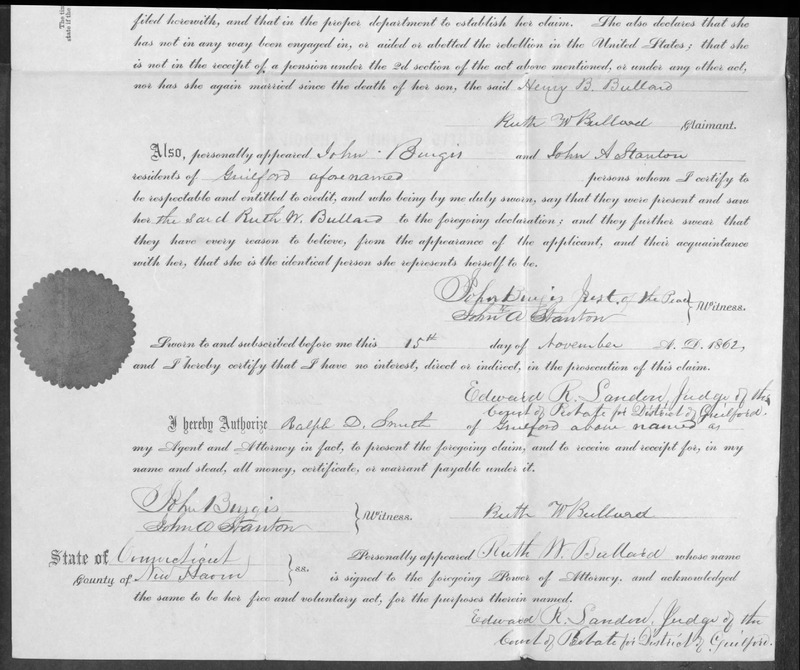 filed herewith, and that in the proper department to establish her claim. She also declares that she
has not in any way been engaged in, or aided or abetted the rebellion in the United States; that she
is not in the receipt of a pension under the 2d section of the act above mentioned, or under any other act,
nor has she again married since the death of her son, the said Henry B. Bullard
Ruth W Bullard Claimant.
Also, personally appeared John Burgis and John A Stanton
residents of Guilford afore named persons whom I certify to
be respectable and entitled to credit, and who being by me duly sworn, say that they were present and saw
her the said Ruth W. Bullard to the foregoing declaration; and they further swear that
they have every reason to believe, from the appearance of the applicant, and their acquaintance
with her, that she is the identical person she represents herself to be.
John Burgis Just. of the Peace
John A Stanton } Witness.
Sworn to and subscribed before me this 15th day of November A. D. 1862,
and I hereby certify that I have no interest, direct or indirect, in the prosecution of this claim.
Edward R. Landon, Judge of the
Court of Probate for District of Guilford.
I hereby Authorize Ralph D. Smith of Guilford above named as
my Agent and Attorney in fact, to present the foregoing claim, and to receive and receipt for, in my
name and stead, all money, certificate, or warrant payable under it.
John Burgis
John A Stanton } Witness. Ruth W Bullard
State of Connecticut
County of New Haven } ss. Personally appeared Ruth W. Bullard whose name
is signed to the foregoing Power of Attorney. and acknowledged
the same to be her free and voluntary act, for the purposes therein named.
Edward R. Landon, Judge of the
Court of Probate for District of Guilford.